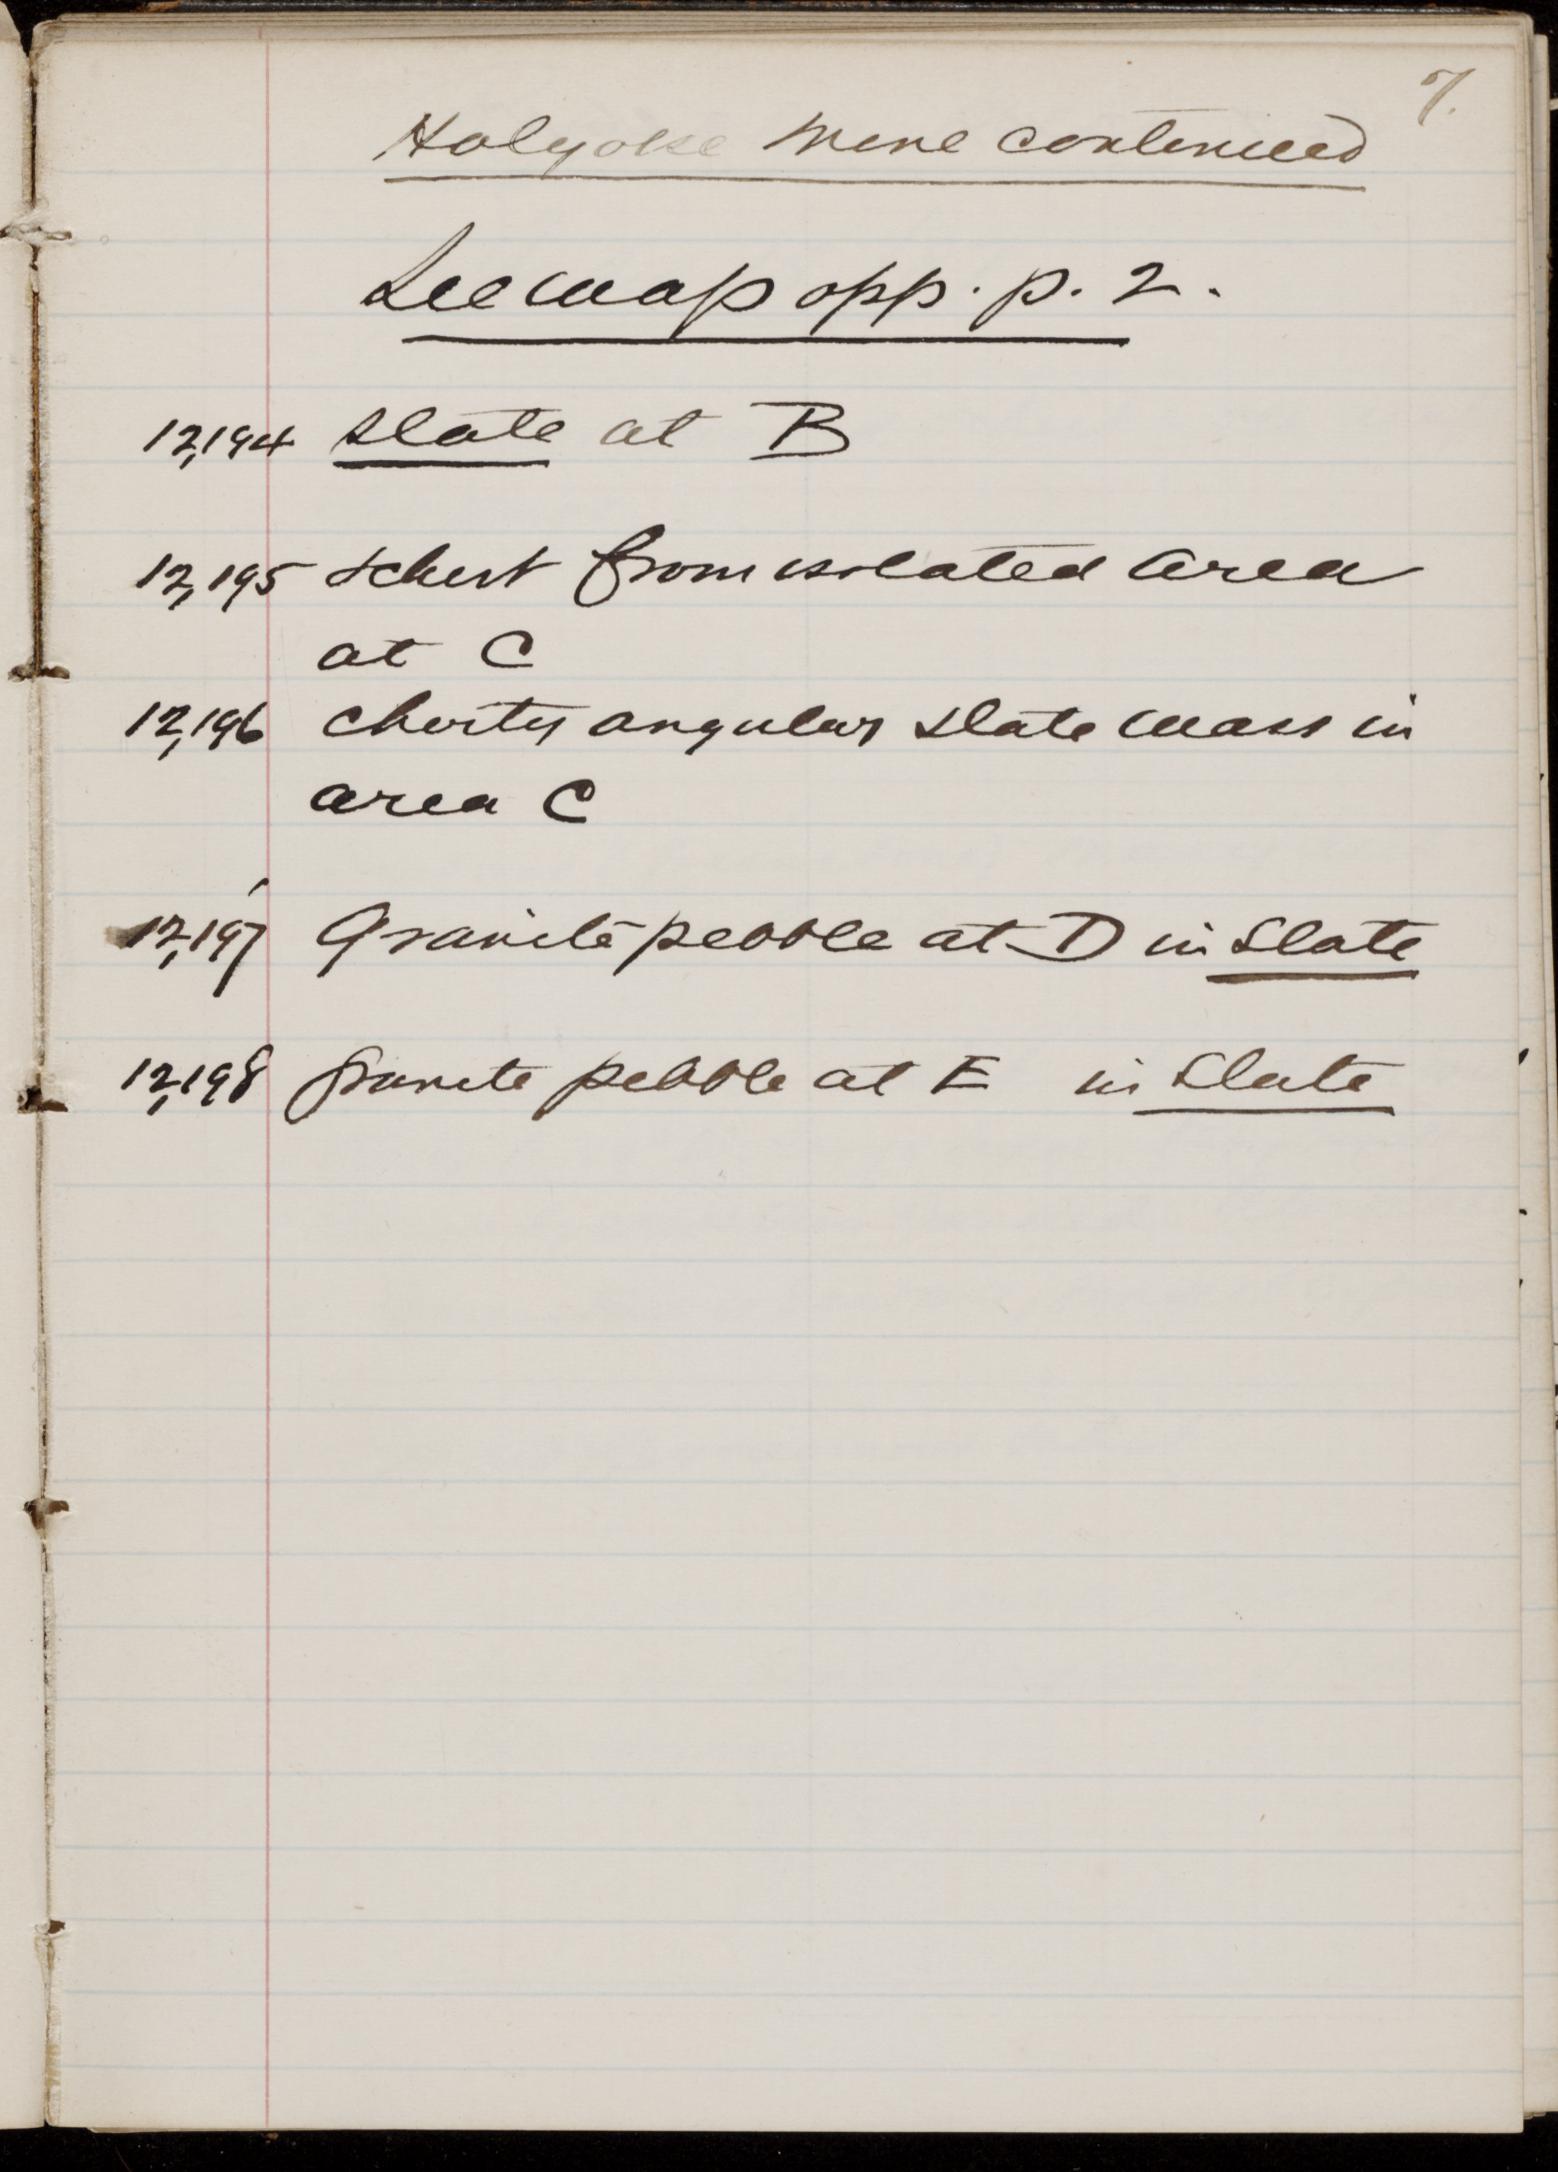 7.
Holyoke Mine continued
See map opp. p. 2.
12,194 slate at B
12,195 schist from isolated area
at C
12,196 cherty angular slate mass in
area C
12,197 Granite pebble at D in slate
12,198 Granite pebble at E in slate